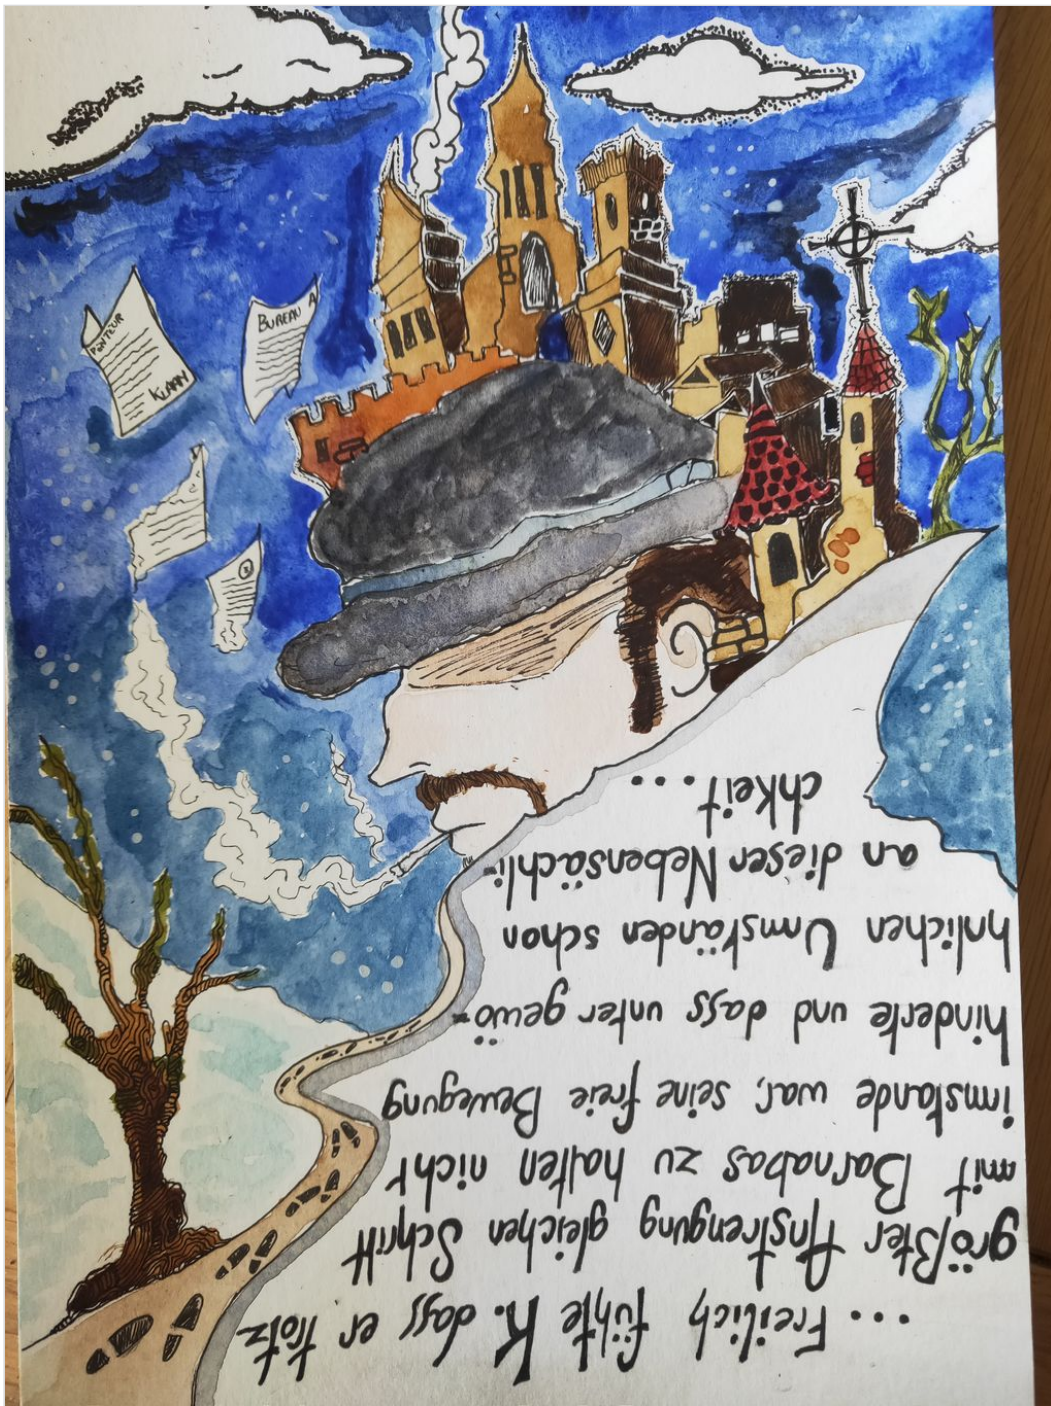 ... Freilich fühlte K. dass er trotz
größter Anstrengung gleichen Schritt
mit Barnabas zu halten nicht
imstande war, seine freie Bewegung
hinderte und dass unter gewö-
hnlichen Umständen schon
an dieser Nebensächli-
chkeit ...
BUREAU A
KLAMM